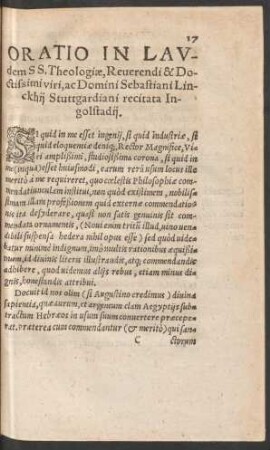 17
ORATIO IN LAV
dem SS. Theologiæ, Reuerendi & Do-
ctissimi viri, ac Domini Sebastiani Lin-
ckhij Stuttgardiani recitata In-
golstadij.
SI quid in me esset ingenij, si quid industriæ, si
quid eloquentiæ deniq;, Rector Magnifice, Vi-
ri amplissimi, studiosissima corona, si quid in
me (inquā) esset huiusmodi, earum rerū usum locus illo
meritò à me requireret, quo cœlestis Philosophiæ com-
mendatiunculam institui, non quòd existimem, nobilis-
simam illam professionem quid externæ commendatio-
nis ita desyderare, quasi non satis genuinis sit com-
mendata ornamentis, (Noui enim tritū illud, uino uen-
dibili suspensa hedera nihil opus esse) sed quòd uidea-
tur minimè indignum, imò multis rationibus æquissi-
mum, id diuinis literis illustrandis, atq; commendandis
adhibere, quod uidemus alijs rebus, etiam minus dig-
nis, honestandis attribui.
Docuit id nos olim (si Augustino credimus) diuina
sapientia, quæ aurum, et argentum clam Aegyptijs sub-
tractum Hebræos in usum suum conuertere præcepe-
rat. præterea cum commendantur (& meritò) qui san-
C ctorum